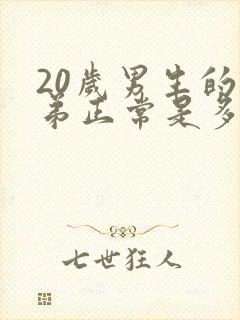 20歲男生的
弟正常是多
七世狂人